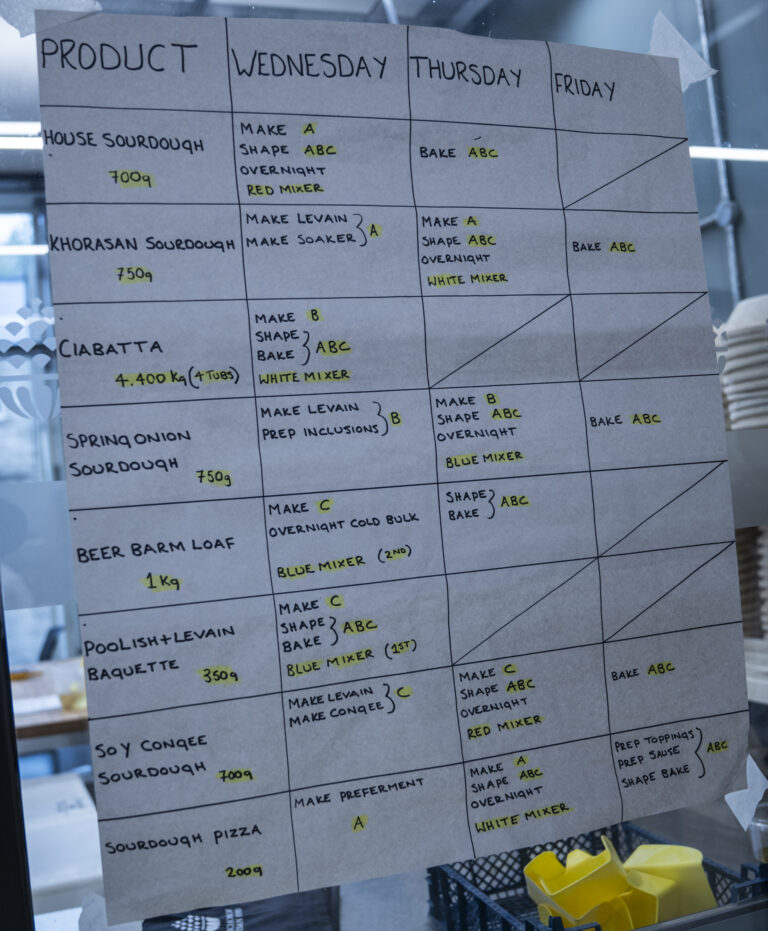 PRODUCT WEDNESDAY THURSDAY FRIDAY
HOUSE SOURDOUGH
700g
MAKE A
SHAPE ABC
OVERNIGHT
RED MIXER
BAKE ABC
KHORASAN SOURDOUGH
750g
MAKE LEVAIN
MAKE SOAKER } A
MAKE A
SHAPE ABC
OVERNIGHT
WHITE MIXER
BAKE ABC
CIABATTA
4.400 Kg (4 TUBS)
MAKE B
SHAPE
BAKE } ABC
WHITE MIXER
SPRING ONION
SOURDOUGH
750g
MAKE LEVAIN
PREP INCLUSIONS } B
MAKE B
SHAPE ABC
OVERNIGHT
BLUE MIXER
BAKE ABC
BEER BARM LOAF
1 Kg
MAKE C
OVERNIGHT COLD BULK
BLUE MIXER (2ND)
SHAPE
BAKE } ABC
POOLISH + LEVAIN
BAGUETTE 350g
MAKE C
SHAPE
BAKE } ABC
BLUE MIXER (1ST)
SOY CONGEE
SOURDOUGH 700g
MAKE LEVAIN
MAKE CONGEE } C
MAKE C
SHAPE ABC
OVERNIGHT
RED MIXER
BAKE ABC
SOURDOUGH PIZZA
200g
MAKE PREFERMENT
A
MAKE A
SHAPE ABC
OVERNIGHT
WHITE MIXER
PREP TOPPINGS
PREP SAUSE
SHAPE BAKE } ABC